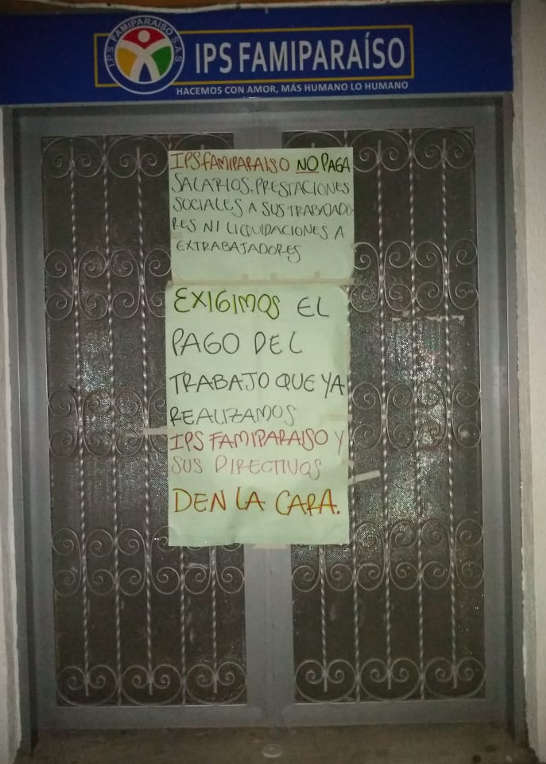 IPS FAMIPARAISO S.A.S
IPS FAMIPARAÍSO
HACEMOS CON AMOR, MÁS HUMANO LO HUMANO
IPS FAMIPARAISO NO PAGA
SALARIOS, PRESTACIONES
SOCIALES A SUS TRABAJADO
RES NI LIQUIDACIONES A
EXTRABAJADORES
EXIGIMOS EL
PAGO DEL
TRABAJO QUE YA
REALIZAMOS
IPS FAMIPARAISO Y
SUS DIRECTIVOS
DEN LA CARA.